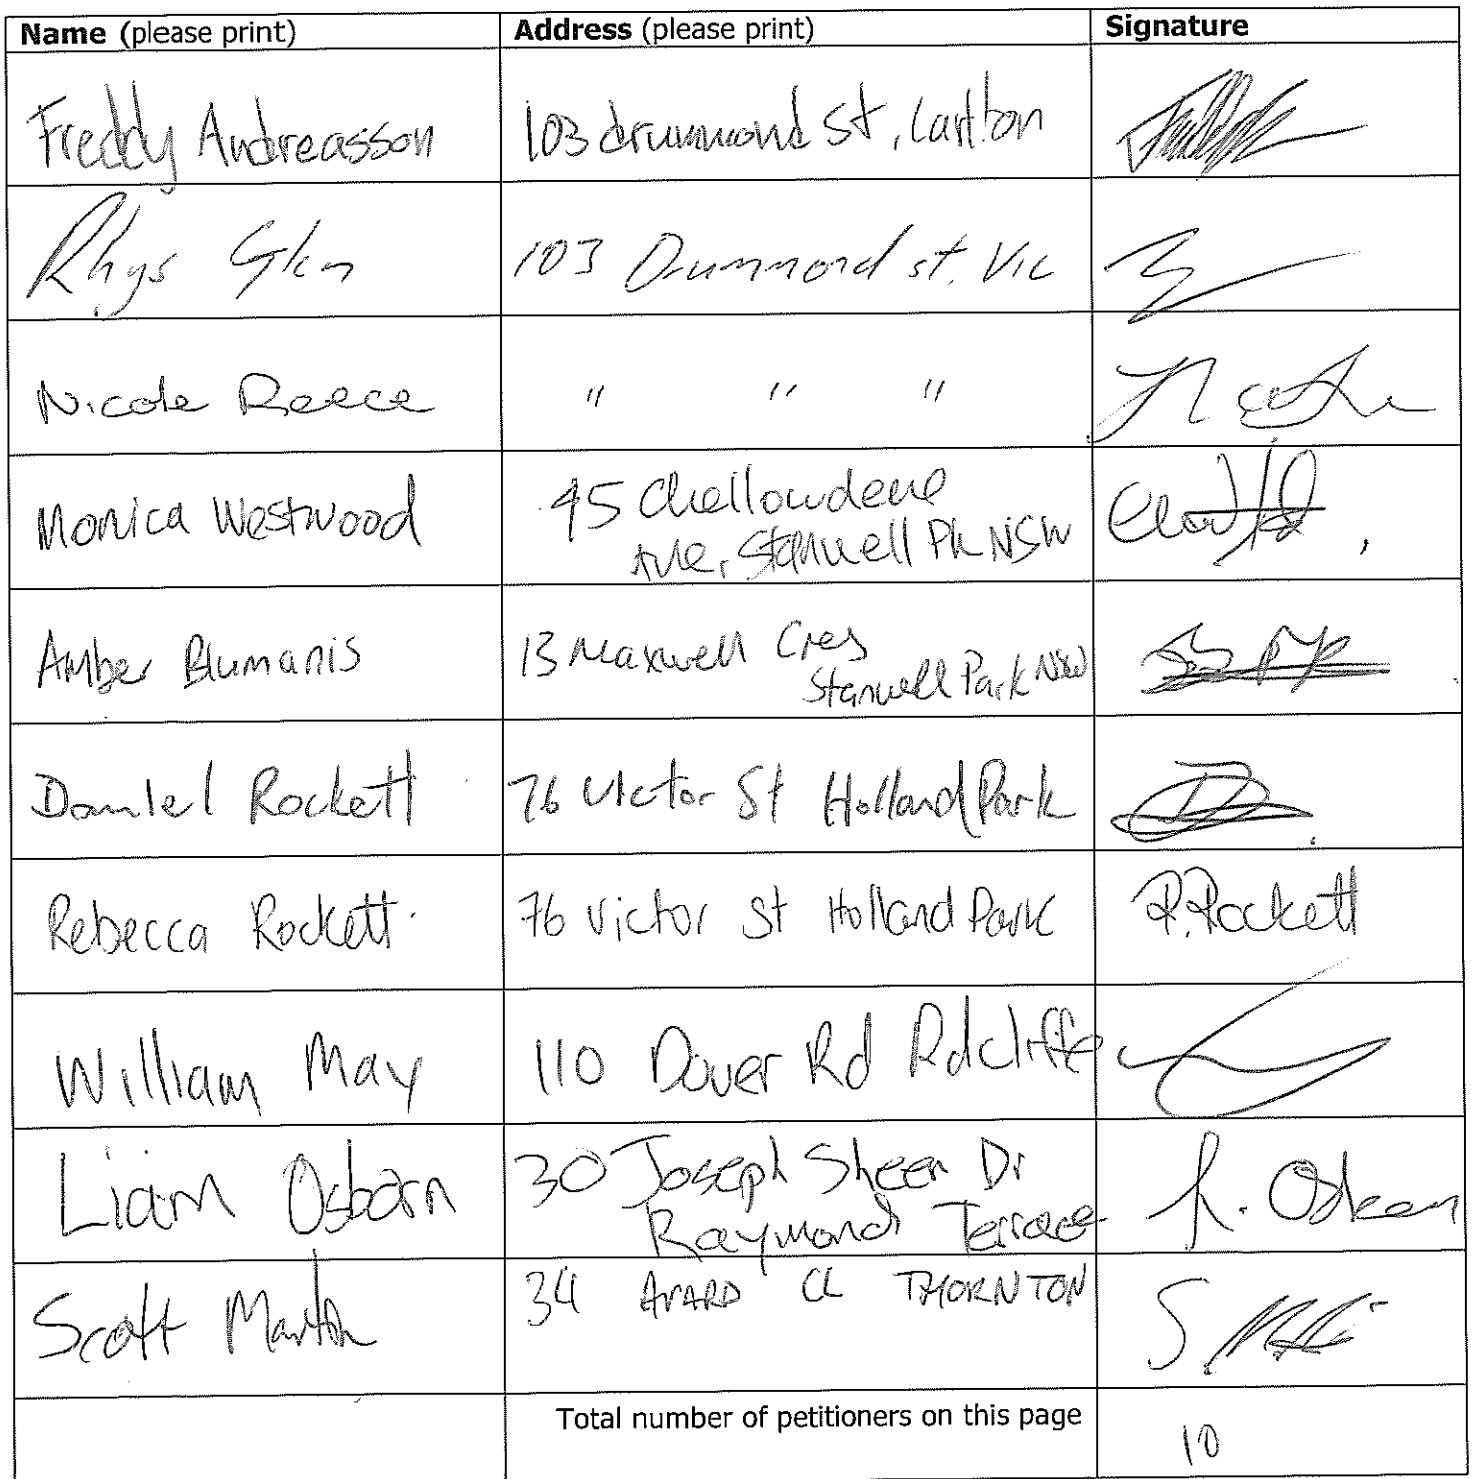 Name (please print) Address (please print) Signature
Freddy Andreasson 103 drummond st, Carlton
Rhys Glen 103 Drummond st. Vic
Nicole Reece " " "
Monica Westwood 45 Chellowdene
Ave, Stanwell Pk NSW
Amber Blumanis 13 Maxwell Cres
Stanwell Park NSW
Daniel Rockett 76 Victor St Holland Park
Rebecca Rockett 76 Victor St Holland Park R.Rockett
William May 110 Dover Rd Rdcliffe
Liam Osborn 30 Joseph Sheen Dr
Raymond Terrace
Scott Martin 34 CL THORNTON
Total number of petitioners on this page
10